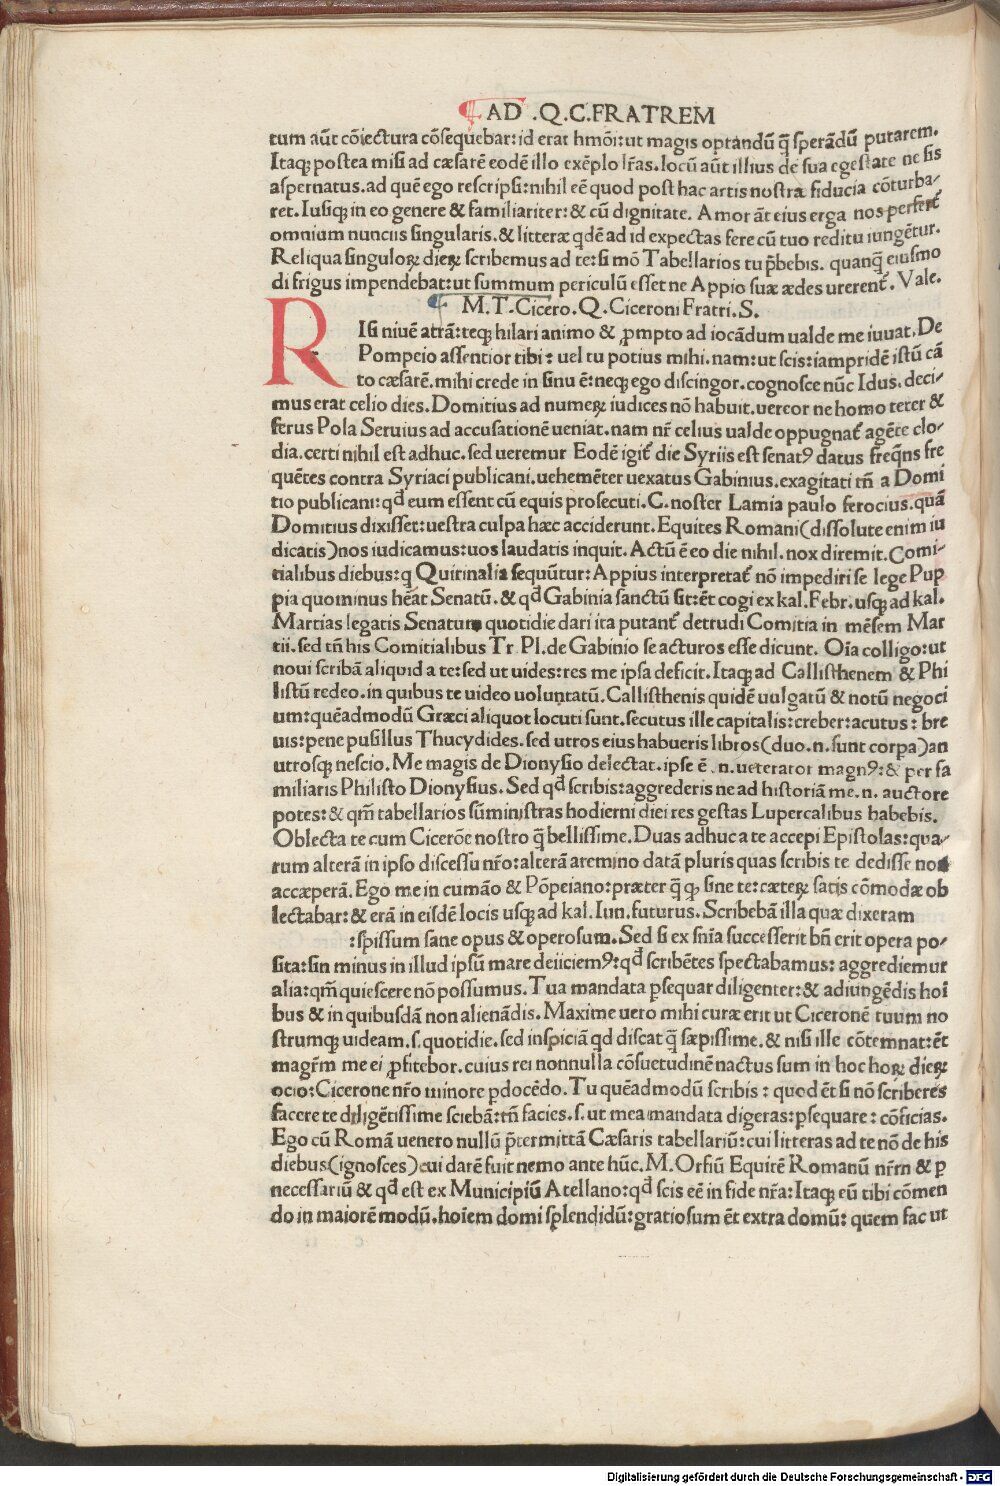 AD .Q.C.FRATREM
tum aũt cõiectura cõsequebar:id erat hmõi:ut magis optandũ q̃ sperãdũ putarem.
Itaqꝫ postea misi ad cæsarẽ eodẽ illo exẽplo lr̃as.locũ aũt illius de sua egestate ne sis
aspernatus.ad quẽ ego rescripsi:nihil eẽ quod post hac artis nostræ fiducia cõturba-
ret.Iusiqꝫ in eo genere & familiariter:& cũ dignitate. Amor ãt eius erga nos perfert᷑
omnium nunciis singularis.& litteræ qdẽ ad id expectas fere cũ tuo reditu iungẽtur.
Reliqua singuloꝝ dieꝝ scribemus ad te:si mõ Tabellarios tu p̃bebis. quanq̃ eiusmo
di frigus impendebat:ut summum periculũ esset ne Appio suæ ædes urerent᷑. Vale.
M.T.Cicero.Q.Ciceroni Fratri.S.
RIsi niuẽ atrã:teqꝫ hilari animo & ꝓmpto ad iocãdum ualde me iuuat.De
Pompeio assentior tibi: uel tu potius mihi.nam:ut scis:iampridẽ istũ cã
to cæsarẽ.mihi crede in sinu ẽ:neqꝫ ego discingor.cognosce nũc Idus.deci-
mus erat celio dies.Domitius ad numeꝝ iudices nõ habuit.uereor ne homo teter &
ferus Pola Seruius ad accusationẽ ueniat.nam nr̃ celius ualde oppugnat᷑ agẽte clo-
dia.certi nihil est adhuc.sed ueremur Eodẽ igit᷑ die Syriis est senatꝰ datus freq̃ns fre
quẽtes contra Syriaci publicani.uehemẽter uexatus Gabinius.exagitati tñ a Domi
tio publicani:qđ eum essent cũ equis prosecuti.C.noster Lamia paulo ferocius.quã
Domitius dixisset:uestra culpa hæc acciderunt.Equites Romani(dissolute enim iu
dicatis)nos iudicamus:uos laudatis inquit.Actũ ẽ eo die nihil.nox diremit.Comi-
tialibus diebus:q Quirinalia sequũtur:Appius interpretat᷑ nõ impediri se lege Pup
pia quominus hẽat Senatũ.& qđ Gabinia sanctũ sit:ẽt cogi ex kal.Febr.usqꝫ ad kal.
Martias legatis Senatum quotidie dari ita putant᷑ detrudi Comitia in mẽsem Mar
tii.sed tñ his Comitialibus Tr Pl.de Gabinio se acturos esse dicunt. Oĩa colligo:ut
noui scribã aliquid a te:sed ut uides:res me ipsa deficit.Itaqꝫ ad Callisthenem & Phi
listũ redeo.in quibus te uideo uoluntatũ.Callisthenis quidẽ uulgatũ & notũ negoci
um:quẽadmodũ Græci aliquot locuti sunt.secutus ille capitalis:creber:acutus: bre
uis:pene pusillus Thucydides.sed utros eius habueris libros(duo.n.sunt corpa)an
utrosqꝫ nescio.Me magis de Dionysio delectat.ipse ẽ.n.ueterator magnꝰ:& per fa
miliaris Philisto Dionysius.Sed qđ scribis:aggrederis ne ad historiã me.n. auctore
potes:& qm̃ tabellarios sũministras hodierni diei res gestas Lupercalibus habebis.
Oblecta te cum Cicerõe nostro q̃ bellissime.Duas adhuc a te accepi Epistolas:qua-
rum alterã in ipso discessu nr̃o:alterã aremino datã pluris quas scribis te dedisse non
accæperã.Ego me in cumão & Põpeiano:præter q̃ qꝫ sine te:cæteꝝ satis cõmodæ ob
lectabar:& erã in eisdẽ locis usqꝫ ad kal.Iun.futurus.Scribebã illa quæ dixeram
:spissum sane opus & operosum.Sed si ex sñia successerit bñ erit opera po-
sita:sin minus in illud ipsũ mare deiiciemꝰ:qđ scribẽtes spectabamus: aggrediemur
alia:qm̃ quiescere nõ possumus.Tua mandata ꝑsequar diligenter:& adiungẽdis hoĩ
bus & in quibusdã non alienãdis.Maxime uero mihi curæ erit ut Ciceronẽ tuum no
strumqꝫ uideam.s.quotidie.sed inspiciã qd discat q̃ sæpissime.& nisi ille cõtemnat:ẽt
magr̃m me ei ꝓfitebor.cuius rei nonnulla cõsuetudinẽ nactus sum in hoc hoꝝ dieꝝ
ocio:Cicerone nr̃o minore ꝑdocẽdo.Tu quẽadmodũ scribis: quod ẽt si nõ scriberes
facere te diligẽtissime sciebã:tñ facies.s.ut mea mandata digeras:ꝑsequare: cõficias.
Ego cũ Romã uenero nullũ p̃termittã Cæsaris tabellariũ:cui litteras ad te nõ de his
diebus(ignosces)cui darẽ fuit nemo ante hũc.M.Orfiũ Equirẽ Romanũ nr̃m & ꝑ
necessariũ & qđ est ex Municipiũ Atellano:qđ scis eẽ in fide nr̃a:Itaqꝫ eũ tibi cõmen
do in maiorẽ modũ.hoĩem domi splendidũ:gratiosum ẽt extra domũ: quem fac ut
Digitalisierung gefördert durch die Deutsche Forschungsgemeinschaft - DFG